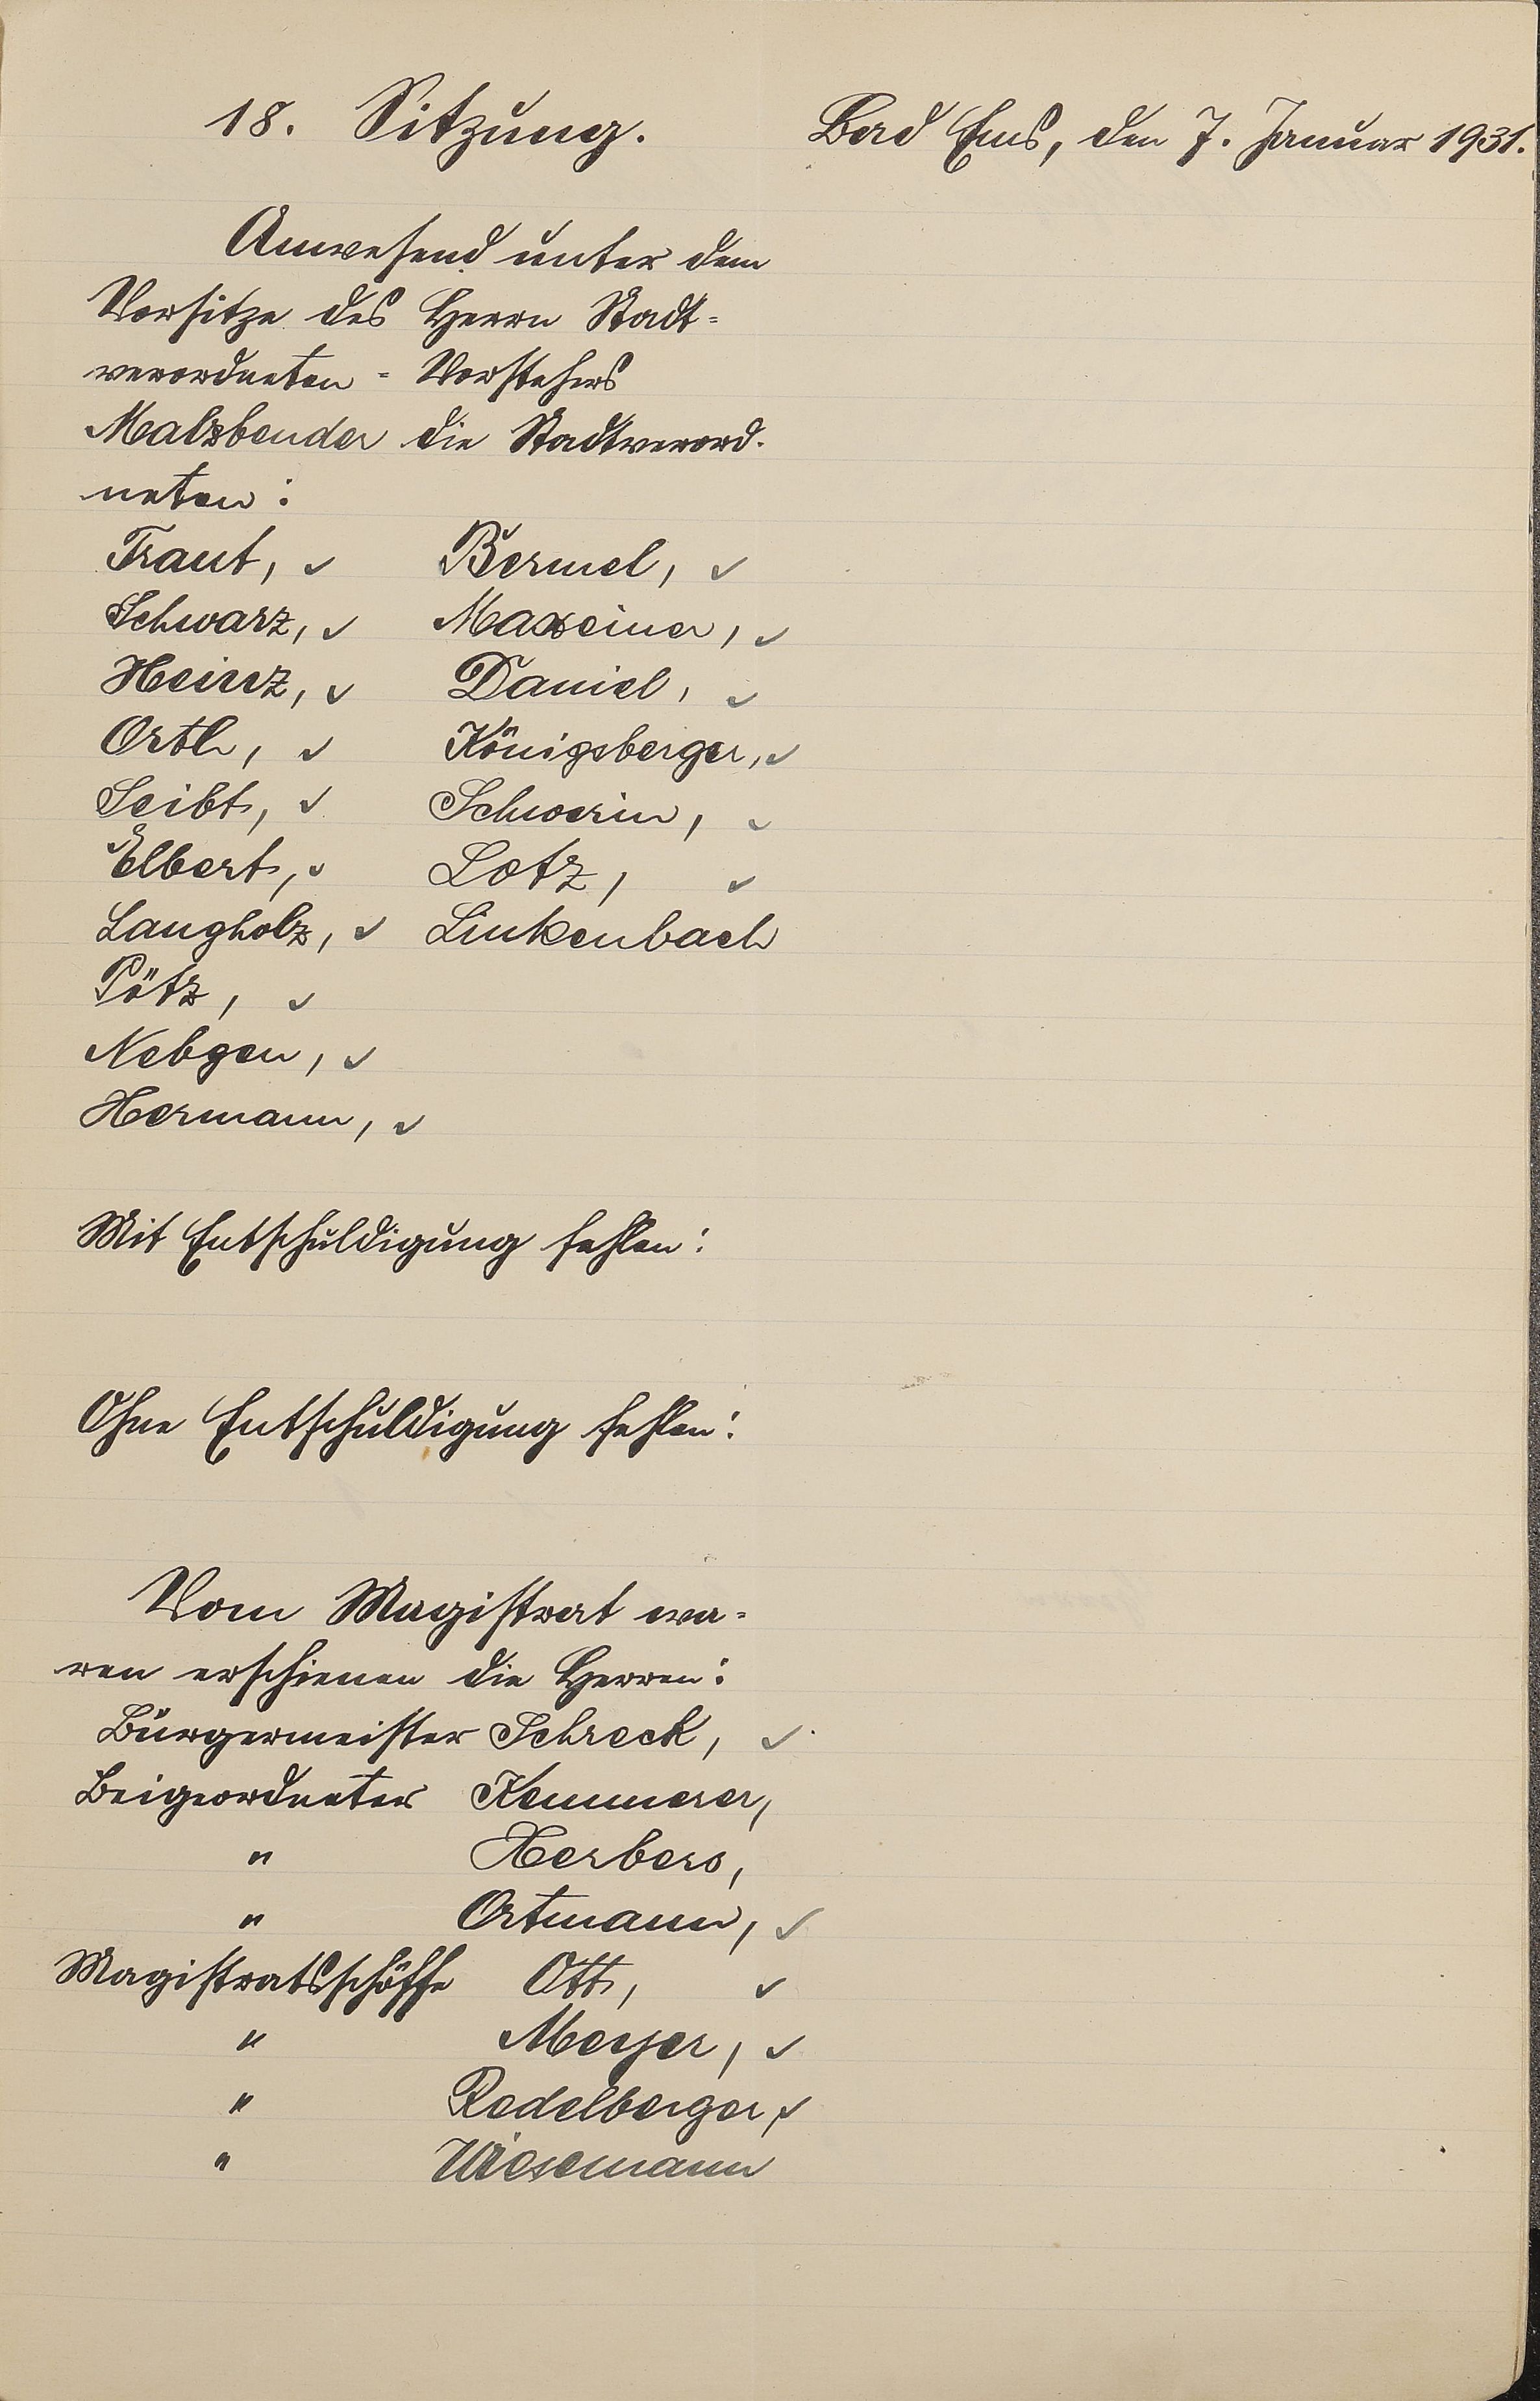 18. Sitzung. Bad Ems, den 7. Januar 1931.
Anwesend unter dem
Vorsitze des Herrn Stadt=
verordneten = Vorstehers
Malzbender die Stadtverord.
neten:
Traut, ✓ Bermel, ✓
Schwarz, ✓ Maxeiner, ✓
Heinz, ✓ Daniel, ✓
Orth, ✓ Königsberger, ✓
Seibt, ✓ Schwerin, ✓
Elbert, ✓ Lotz, ✓
Langholz, ✓ Linkenbach
Pötz, ✓
Nebgen, ✓
Hermann, ✓
Mit Entschuldigung fehlen:
Ohne Entschuldigung fehlen:
Vom Magistrat wa=
ren erschienen die Herren:
Bürgermeister Schreck, ✓
Beigeordneter Kemmerer,
" Herbers,
" Ortmann, ✓
Magistratsschöffe Ott, ✓
" Meyer, ✓
" Redelberger, ✓
" Wiesemann